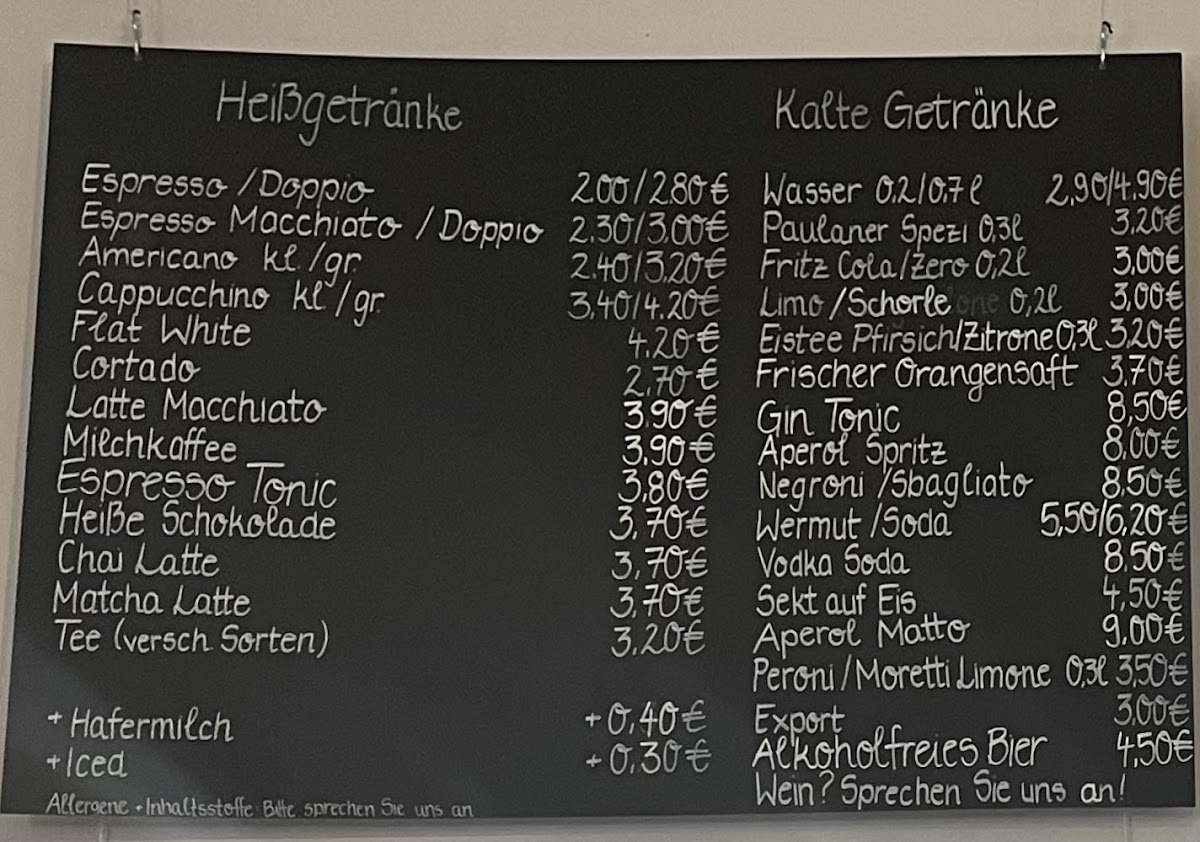 Heißgetränke
Espresso /Doppio 2.00/2.80€
Espresso Macchiato /Doppio 2.30/3.00€
Americano kl./gr. 2.40/3.20€
Cappucchino kl./gr. 3.40/4.20€
Flat White 4.20€
Cortado 2,70€
Latte Macchiato 3.90€
Milchkaffee 3,90€
Espresso Tonic 3,80€
Heiße Schokolade 3,70€
Chai Latte 3,70€
Matcha Latte 3,70€
Tee (versch. Sorten) 3.20€
+ Hafermilch +0,40€
+Iced +0,30€
Allergene + Inhaltsstoffe: Bitte sprechen Sie uns an
Kalte Getränke
Wasser 0.2/0.7l 2,90/4.90€
Paulaner Spezi 0,3l 3,20€
Fritz Cola/Zero 0,2l 3,00€
Limo /Schorle 0,2l 3,00€
Eistee Pfirsich/Zitrone 0,3l 3,20€
Frischer Orangensaft 3.70€
Gin Tonic 8,50€
Aperol Spritz 8.00€
Negroni /Sbagliato 8.50€
Wermut /Soda 5,50/6,20€
Vodka Soda 8.50€
Sekt auf Eis 4,50€
Aperol Matto 9,00€
Peroni/Moretti Limone 0,3l 3,50€
Export 3.00€
Alkoholfreies Bier 4,50€
Wein? Sprechen Sie uns an!